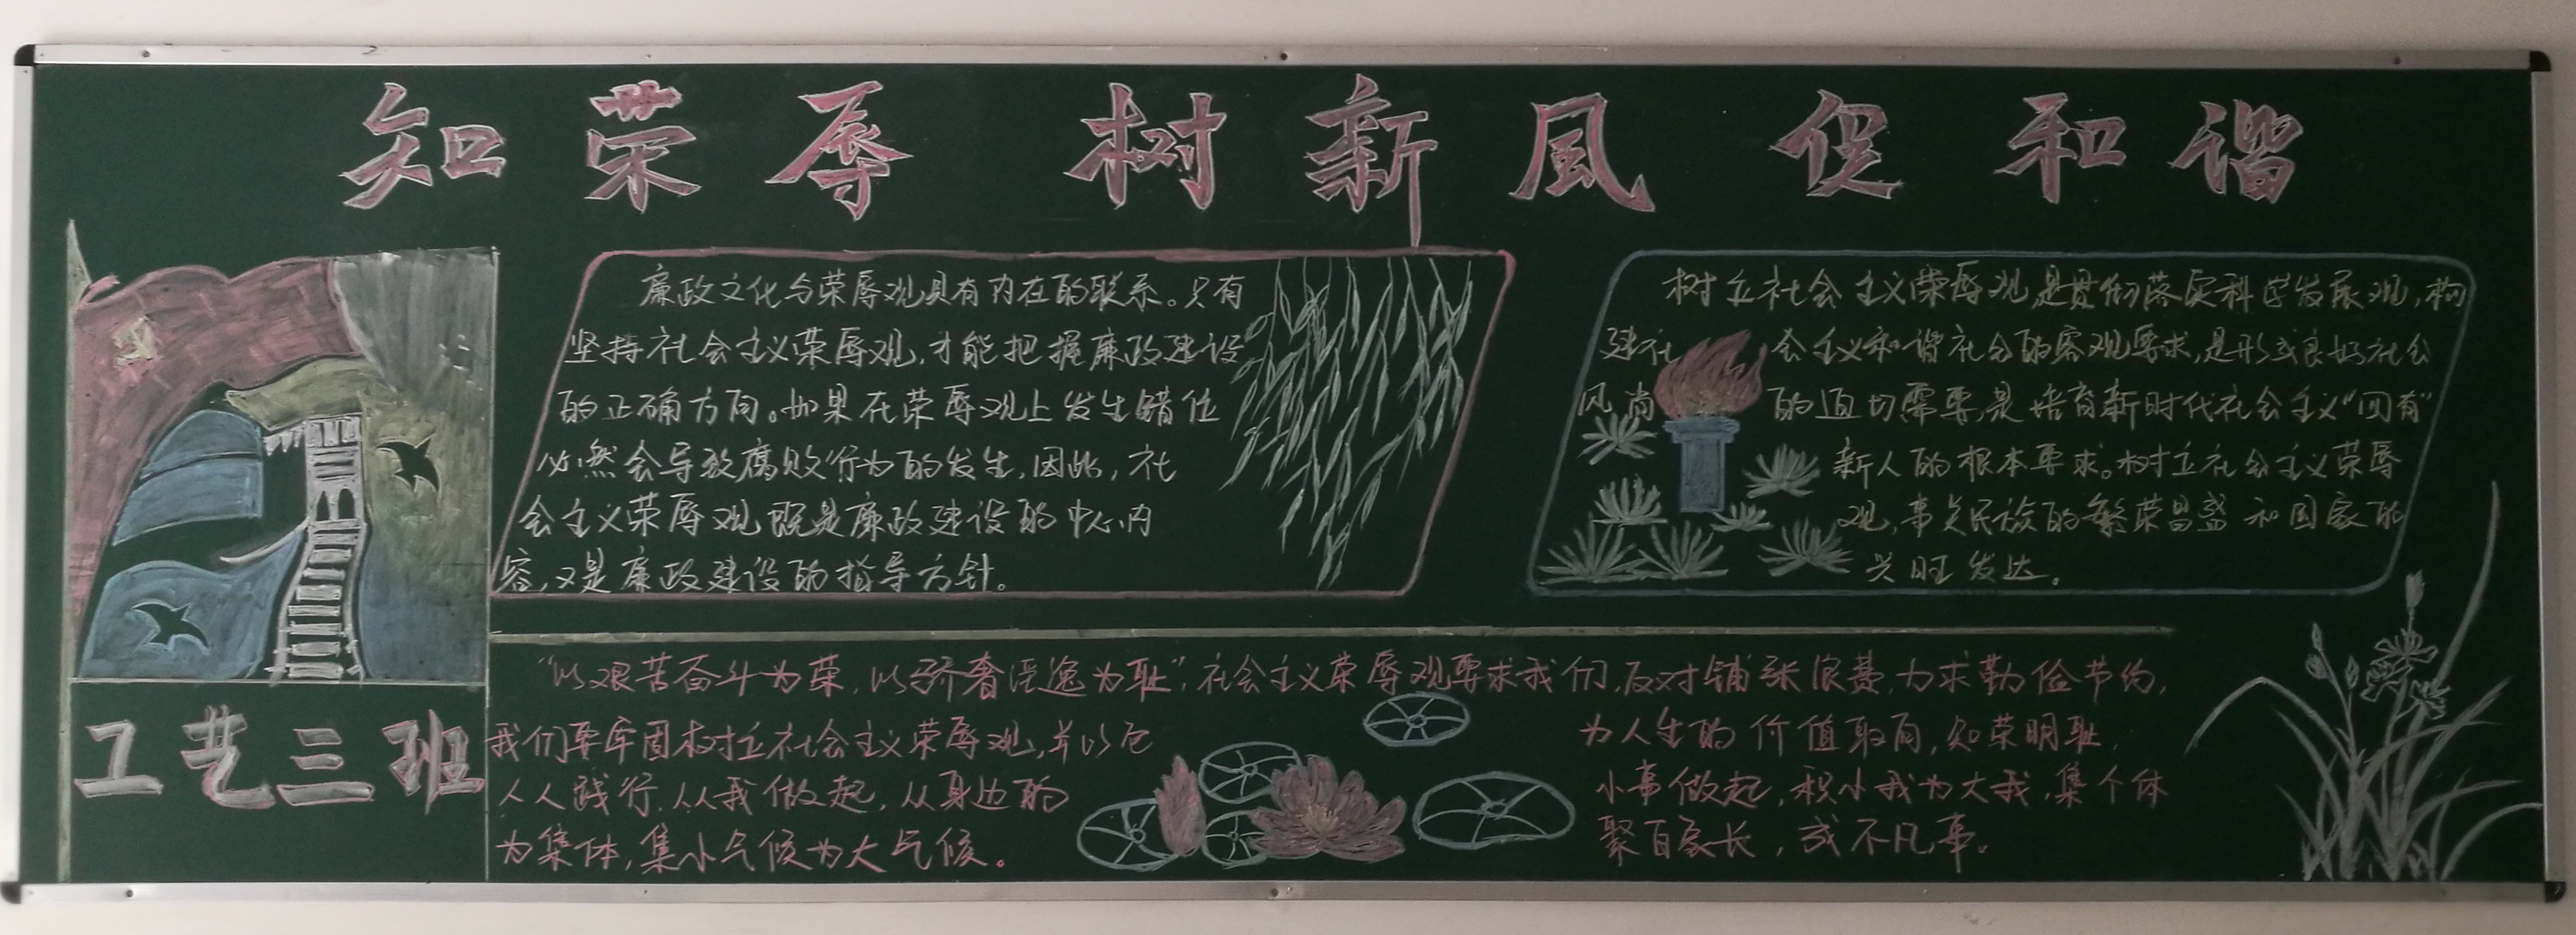 知荣辱 树新風 促和谐
廉政文化与荣辱观具有内在的联系。只有
坚持社会主义荣辱观,才能把握廉政建设
的正确方向。如果在荣辱观上发生错位
必然会导致腐败行为的发生,因此,社
会主义荣辱观既是廉政建设的中心内
容,又是廉政建设的指导方针。
树立社会主义荣辱观,是贯彻落实科学发展观,构
建社会主义和谐社会的客观要求,是形成良好社会
风尚的迫切需要,是培育新时代社会主义“四有”
新人的根本要求。树立社会主义荣辱
观,事关民族的繁荣昌盛和国家的
兴旺发达。
工艺三班
“以艰苦奋斗为荣,以骄奢淫逸为耻”,社会主义荣辱观要求我们,反对铺张浪费,力求勤俭节约,
我们要牢固树立社会主义荣辱观,并以它为人生的价值取向,知荣明耻,
人人践行,从我做起,从身边的小事做起,积小我为大我,集个体
为集体,集小气候为大气候。聚百家长,成不凡事。